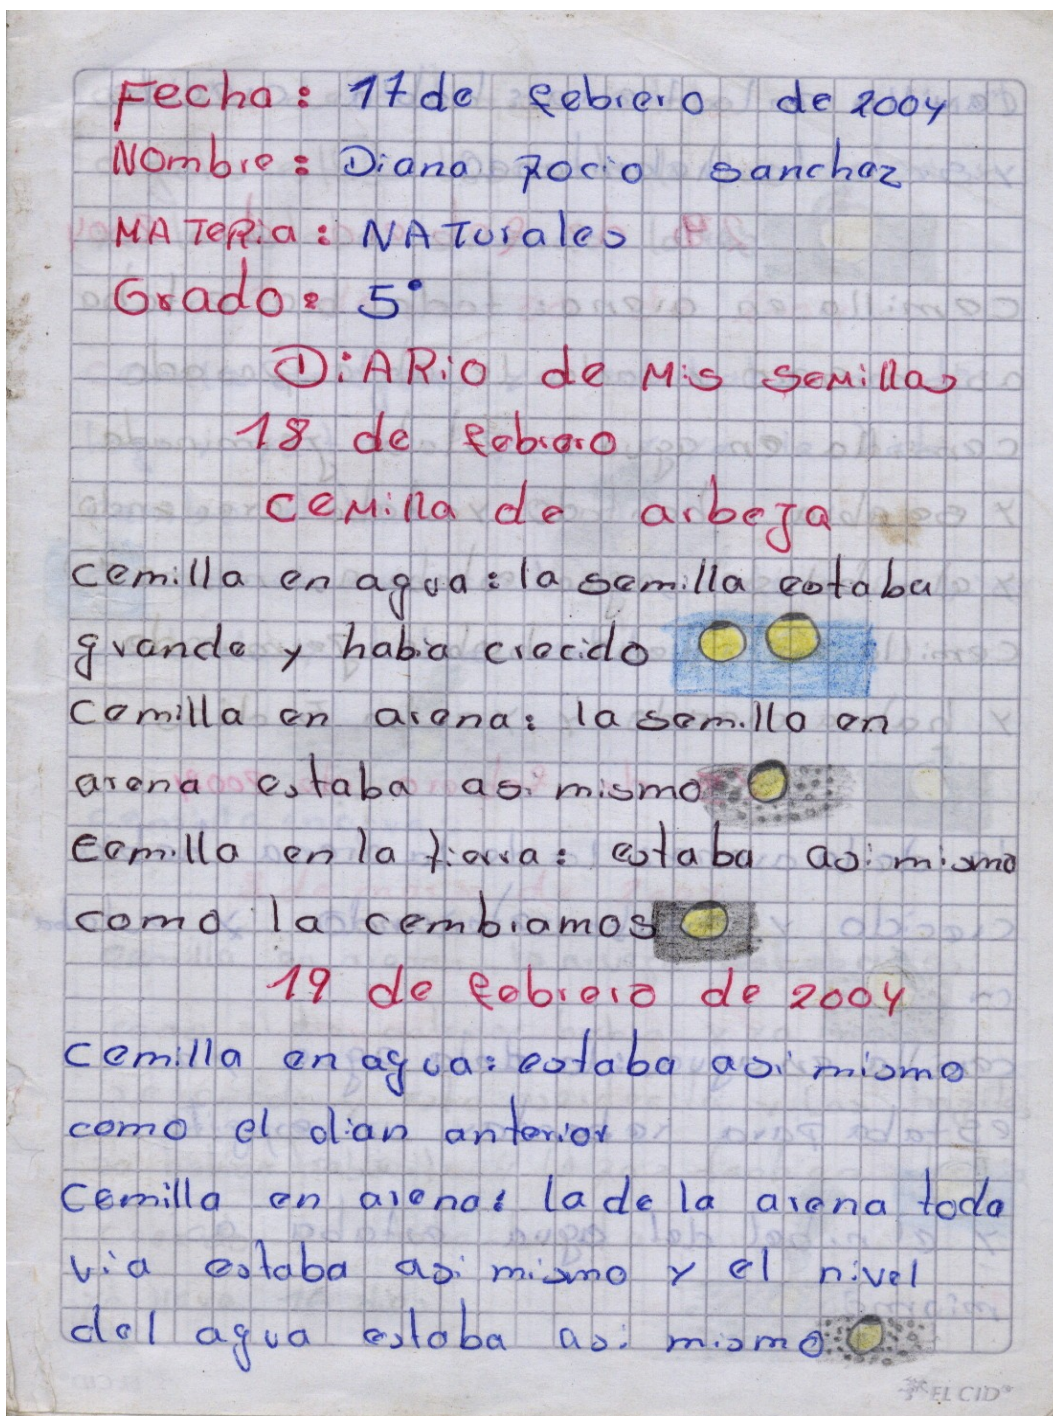 Fecha: 17 de febrero de 2004
Nombre: Diana Rocio sanchez
MATeRia: NATurales
Grado: 5°
DiARio de Mis seMillas
18 de febrero
ceMilla de arbeJa
cemilla en agua: la semilla estaba
grande y habia crecido
cemilla en arena: la semilla en
arena estaba asi mismo
cemilla en la tierra: estaba asi mismo
como la cembiamos
19 de febrero de 2004
cemilla en agua: estaba asi mismo
como el dian anterior
cemilla en arena: la de la arena toda
via estaba asi mismo y el nivel
del agua estaba asi mismo
EL CID